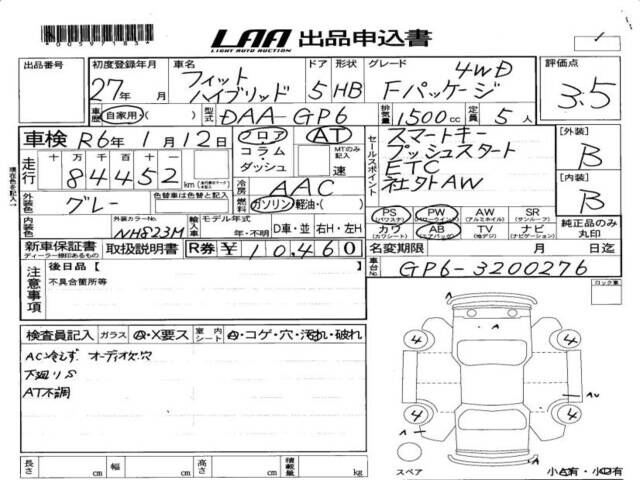 LAA 出品申込書
LIGHT AUTO AUCTION
出品番号 初度登録年月 車名 ドア 形状 グレード 評価点
27年 月 フィット ハイブリッド 5 HB Fパッケージ 4WD 3.5
車歴 自家用・( ) 型式 DAA-GP6 排気量 1500cc 定員 5人
車検 R6年 1月 12日 フロア コラム・ダッシュ AT MTのみ記入 速
セールスポイント スマートキー
プッシュスタート
ETC
社外AW
[外装] B
[内装] B
走行 十 万 千 百 十 一
84452 km
冷房 AAC
外装色 グレー 色替車は色替と記入 燃料 ガソリン 軽油・( )
PS (パワステ) PW (パワーウインド) AW (アルミホイル) SR (サンルーフ)
カワ (カワシート) AB (エアバッグ) TV (地デジ) ナビ (ナビゲーション)
純正品のみ丸印
内装色 外装カラーNo. NH823M モデル年式 年・不明 D車・並 右H・左H
新車保証書 ディーラー捺印あるもの 取扱説明書 R券 ¥10,460 名変期限 月 日迄
車台No. GP6-3200276
注意事項 後日品 [ ]
不具合箇所等
ロック車
検査員記入 ガラス A・X要ス 室内シート A・コゲ・穴・汚れ・破れ
AC冷えず オーディオ欠穴
下廻りS
AT不調
A
4 4
A
AU
4 4
A
スペア
小A有・小U有
長さ cm 幅 cm 高さ cm 積載量 kg